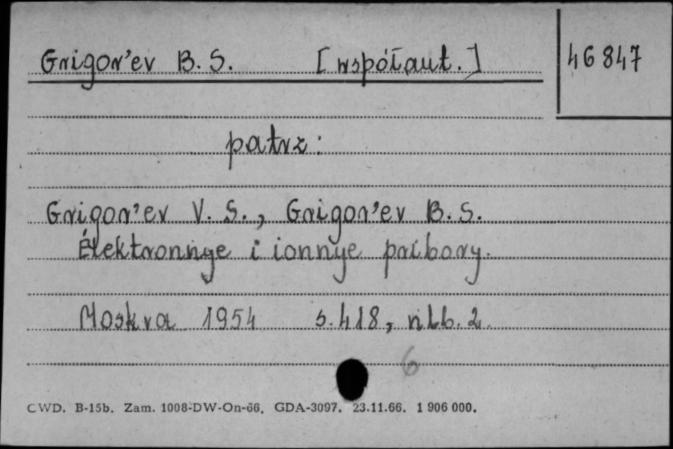 Grigor'ev B. S. [współaut.] 46 847
patrz:
Grigor'ev V. S., Grigor'ev B. S.
Élektronnye i ionnye pribory.
Moskva 1954 s. 418, nlb. 2.
6
CWD. B-15b. Zam. 1008-DW-On-66. GDA-3097. 23.11.66. 1 906 000.